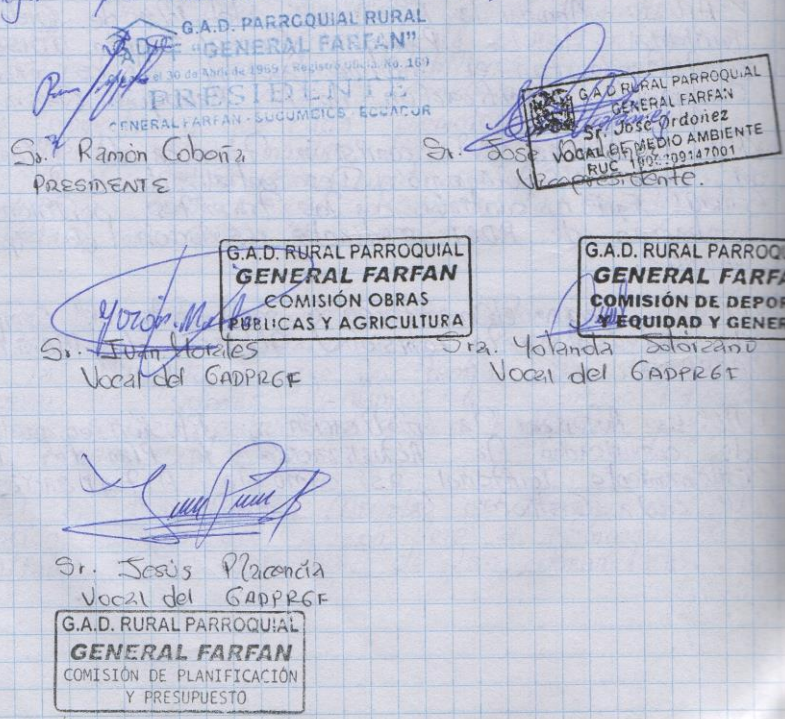 G.A.D. PARROQUIAL RURAL
"GENERAL FARFAN"
30 de Abril de 1969 / Registro Oficial No. 169
PRESIDENTE
GENERAL FARFAN - SUCUMBIOS - ECUADOR
Sr. Ramón Coboña
PRESIDENTE
G.A.D RURAL PARROQUIAL
GENERAL FARFAN
Sr. José Ordoñez
VOCAL DE MEDIO AMBIENTE
RUC
Sr. José
Vicepresidente.
G.A.D. RURAL PARROQUIAL
GENERAL FARFAN
COMISIÓN OBRAS
PUBLICAS Y AGRICULTURA
Sr. Juan Morales
Vocal del GADPRGF
G.A.D. RURAL PARROQU
GENERAL FARFA
COMISIÓN DE DEPOR
Y EQUIDAD Y GENER
Sra. Yolanda Solorzano
Vocal del GADPRGF
Sr. Jesús Placencia
Vocal del GADPRGF
G.A.D. RURAL PARROQUIAL
GENERAL FARFAN
COMISIÓN DE PLANIFICACIÓN
Y PRESUPUESTO